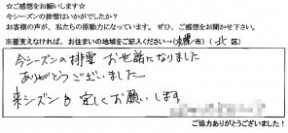 ☆ご感想をお願いします☆
今シーズンの排雪はいかがでしたか?
お客様の声が、私たちの原動力になっています。ぜひ、ご感想をお聞かせ下さい。
※差支えなければ、お住まいの地域をご記入ください→(札幌/市)(北 区)
今シーズンの排雪 お世話になりました
ありがとうございました
来シーズンも宜しくお願いします
ご協力ありがとうございました!